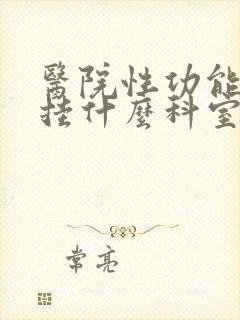 醫院性功能
挂什麼科室
常亮